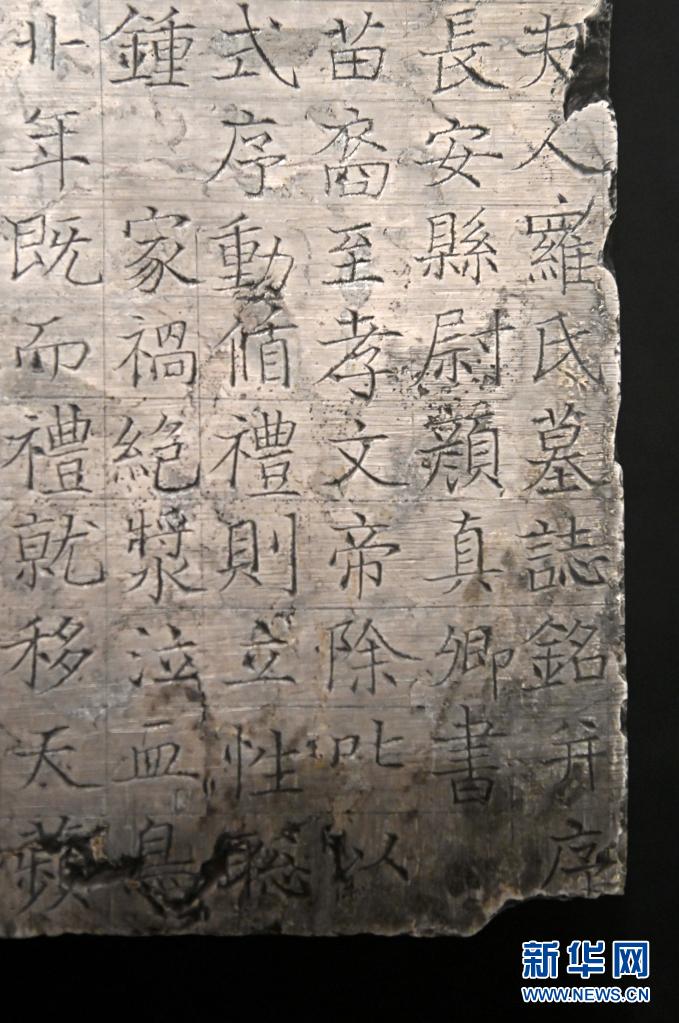 夫人羅氏墓誌銘并序
長安縣尉顏真卿書
苗裔至孝文帝除叱以
式序動循禮則立性聡
鍾 家禍絶漿泣血
丱年既而禮就移天蘋
新华网
WWW.NEWS.CN